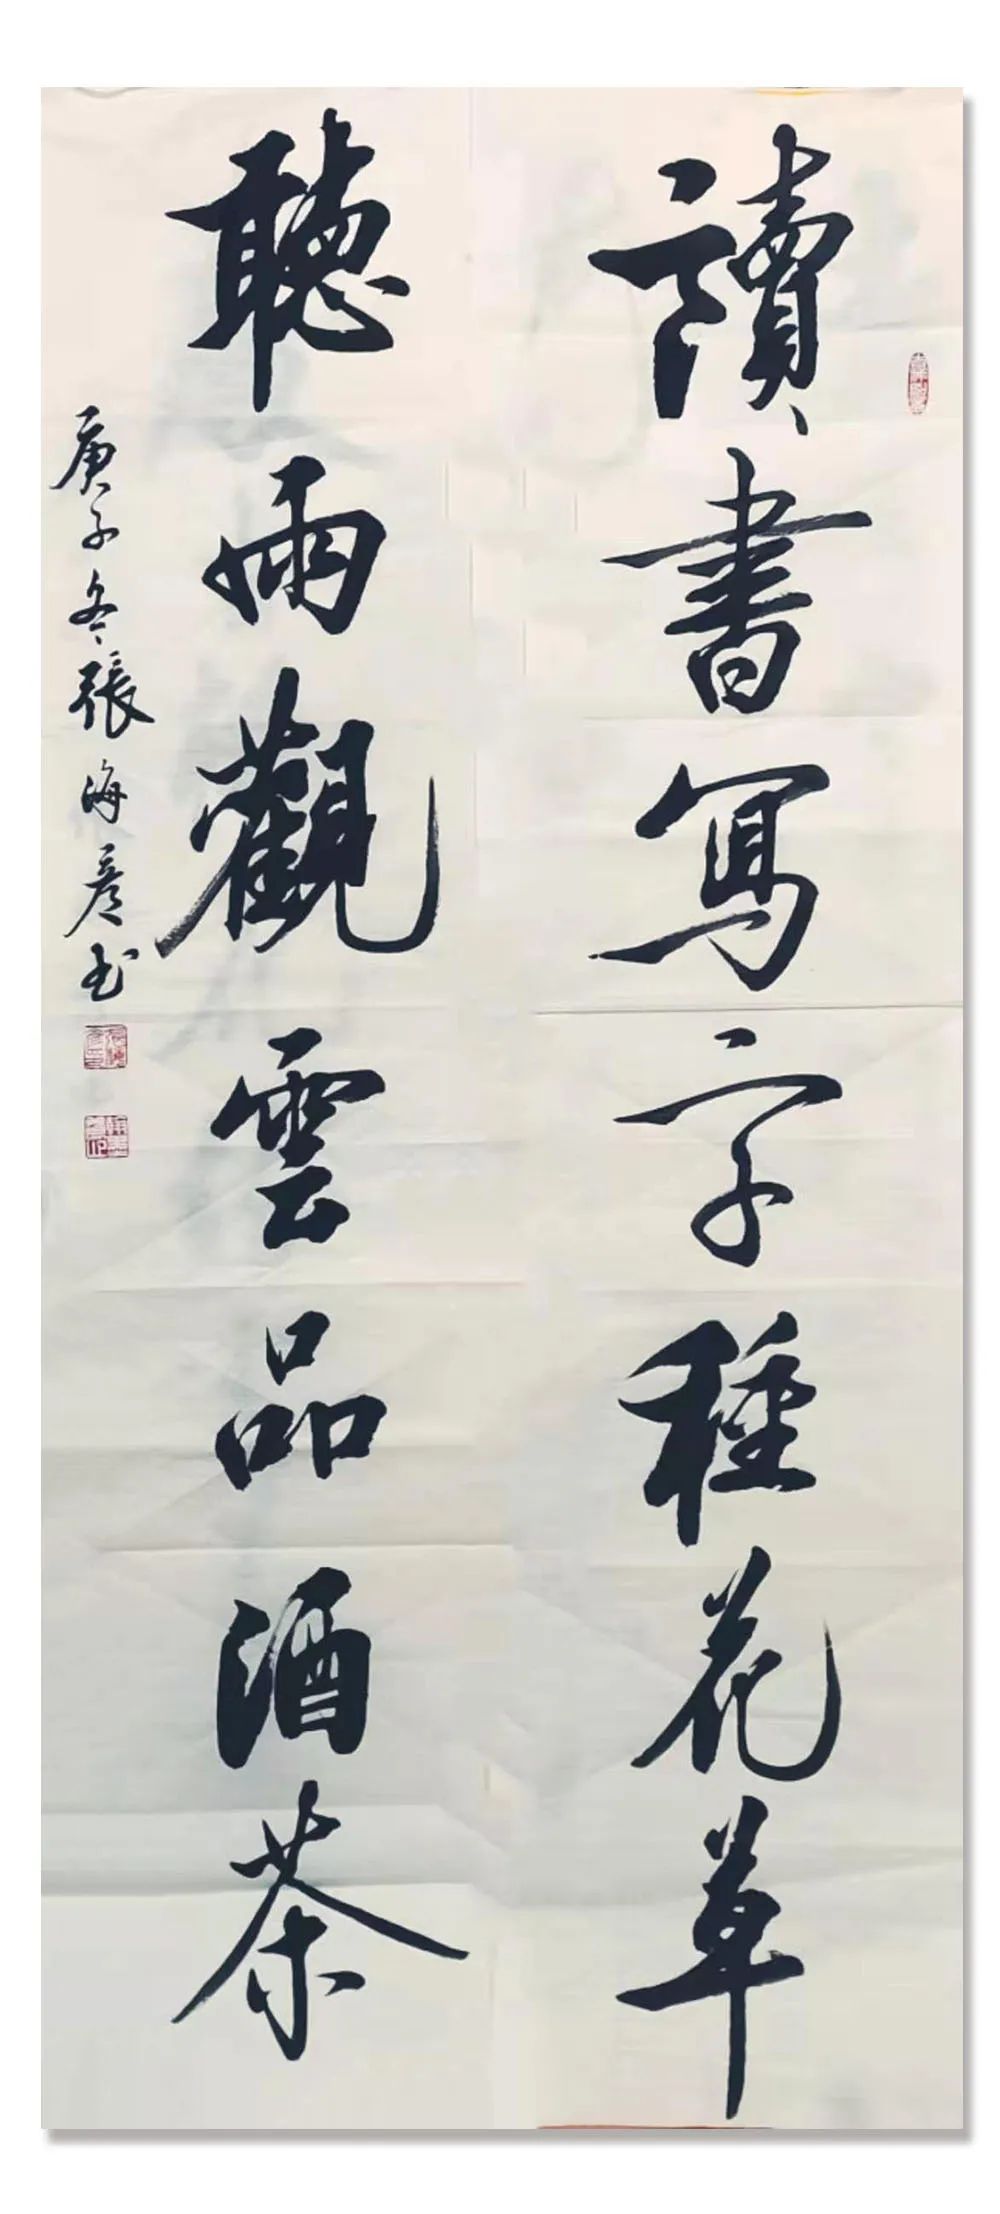 讀書寫字種花草
聽雨觀雲品酒茶
庚子冬張海彥书